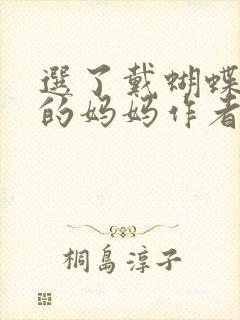 選了戴蝴蝶
的妈妈作者
桐島淳子